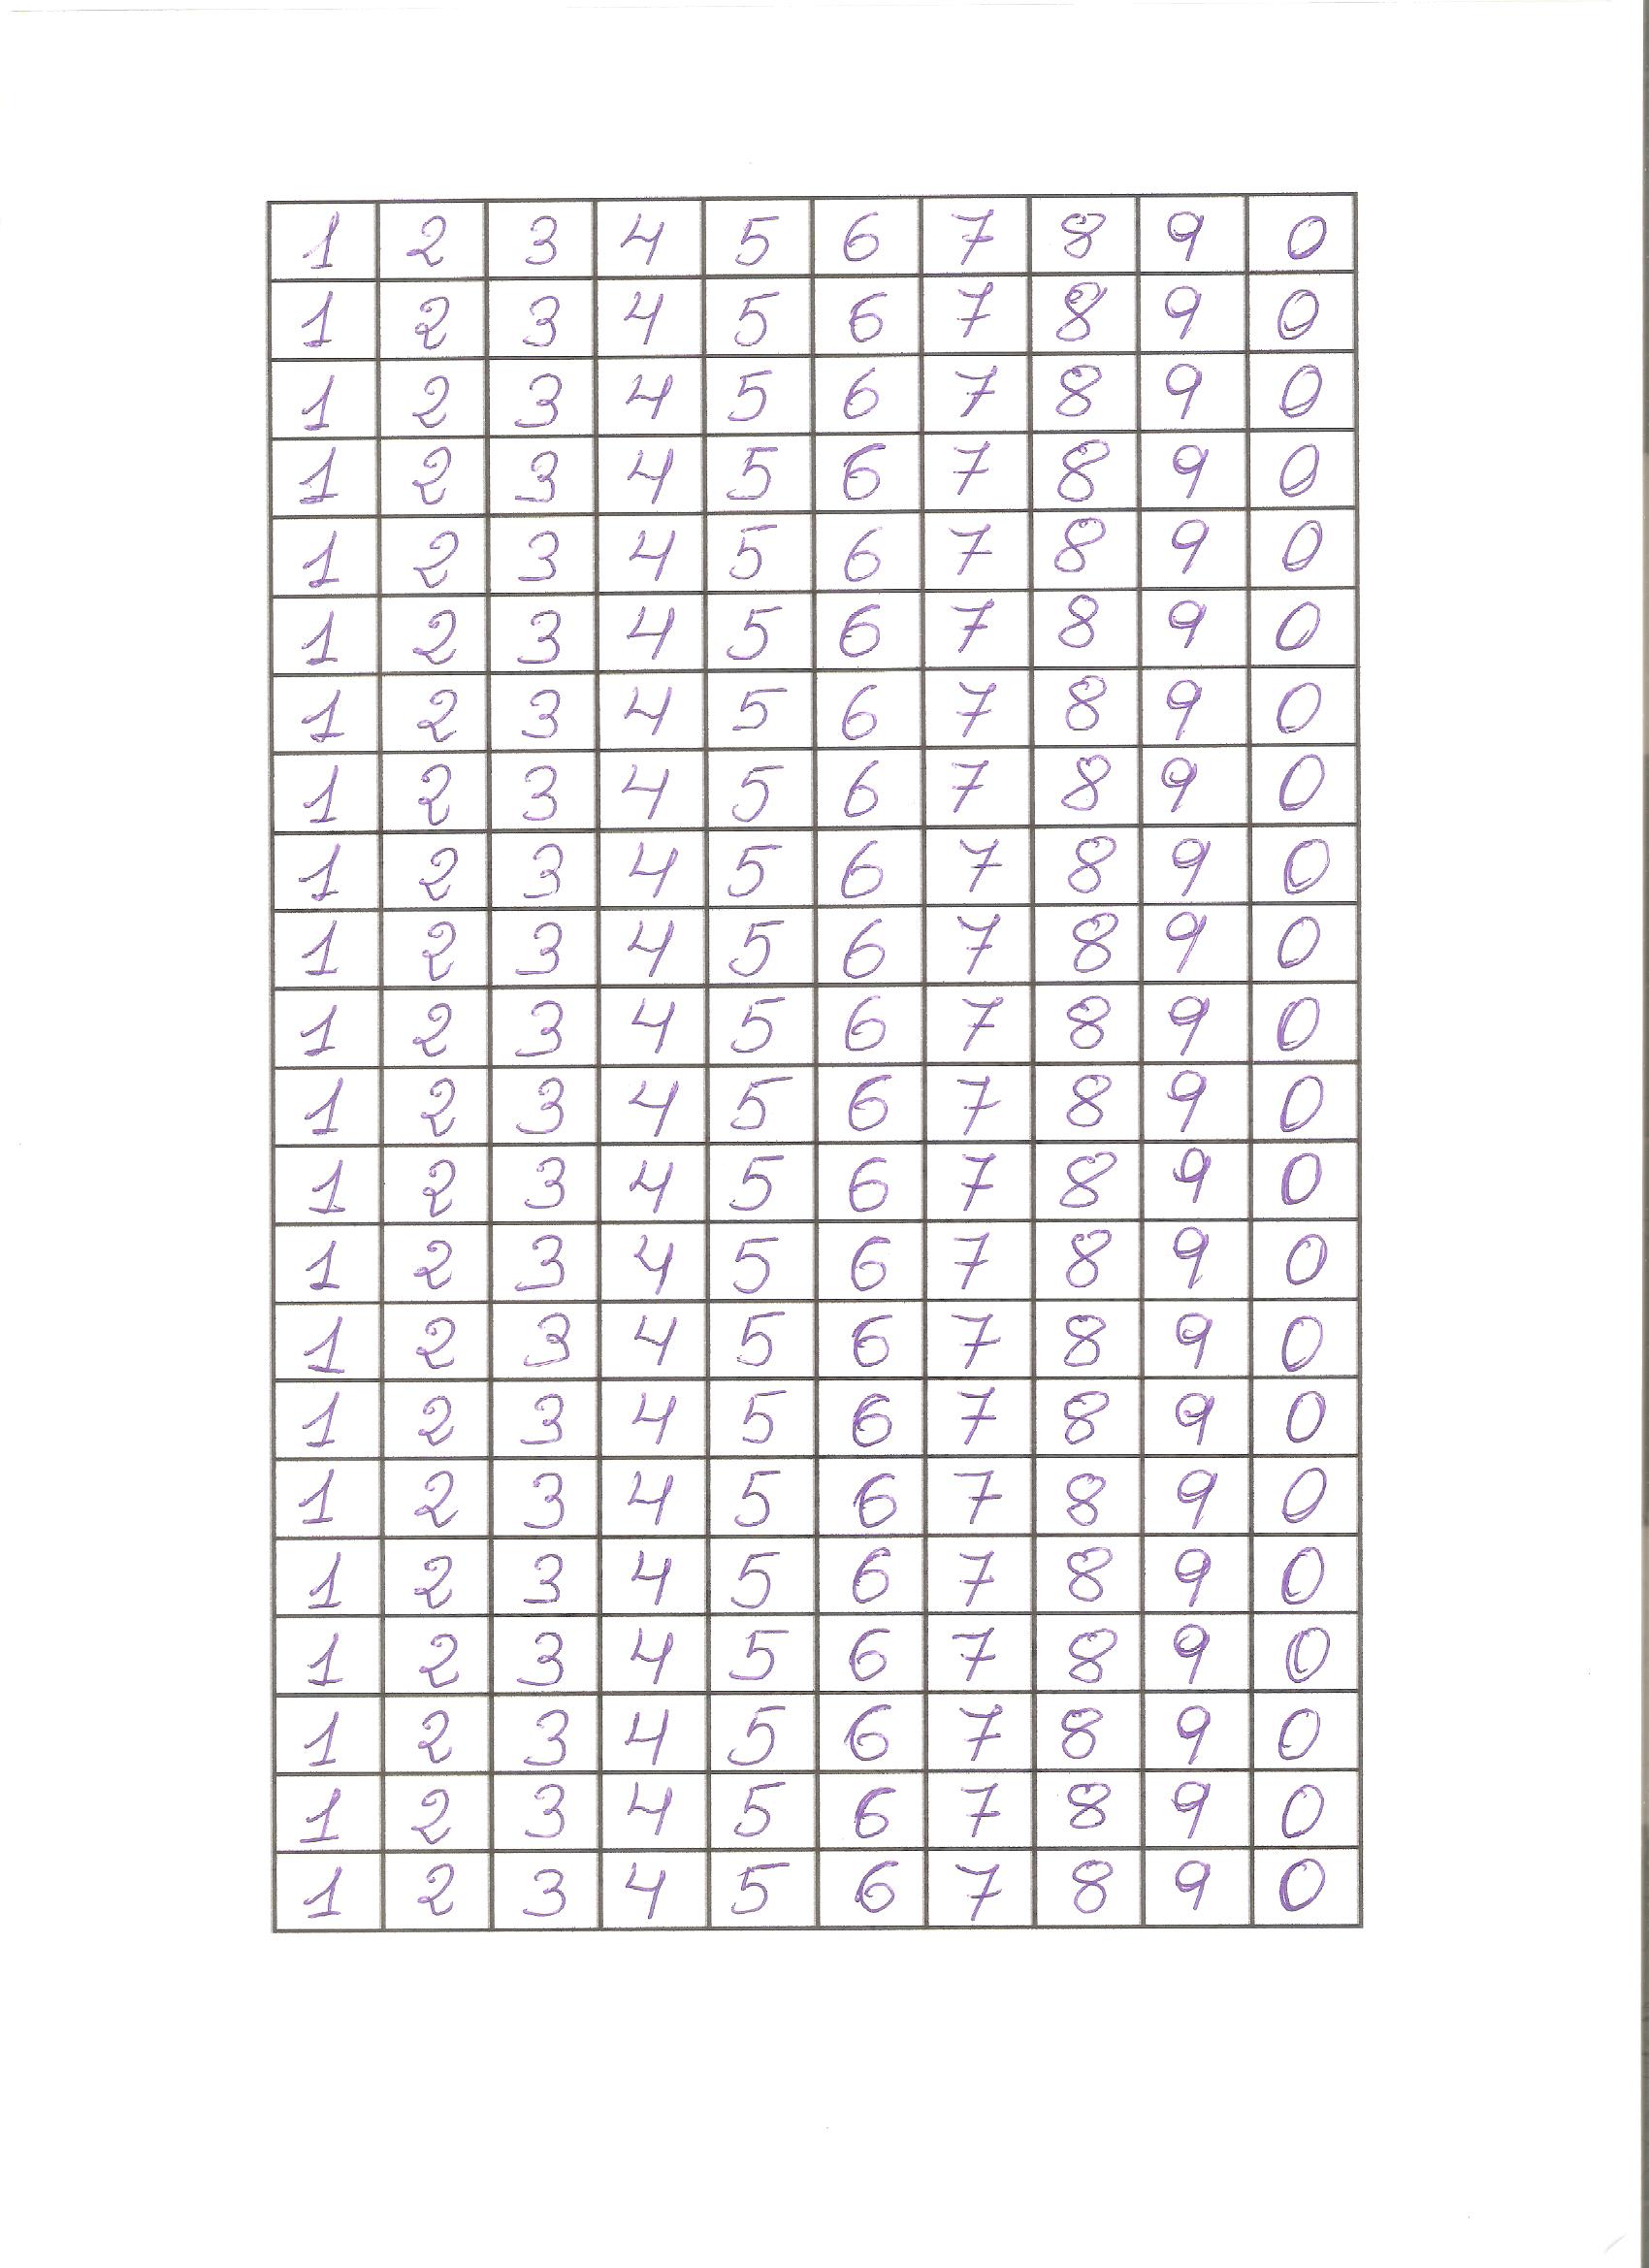 1 2 3 4 5 6 7 8 9 0
1 2 3 4 5 6 7 8 9 0
1 2 3 4 5 6 7 8 9 0
1 2 3 4 5 6 7 8 9 0
1 2 3 4 5 6 7 8 9 0
1 2 3 4 5 6 7 8 9 0
1 2 3 4 5 6 7 8 9 0
1 2 3 4 5 6 7 8 9 0
1 2 3 4 5 6 7 8 9 0
1 2 3 4 5 6 7 8 9 0
1 2 3 4 5 6 7 8 9 0
1 2 3 4 5 6 7 8 9 0
1 2 3 4 5 6 7 8 9 0
1 2 3 4 5 6 7 8 9 0
1 2 3 4 5 6 7 8 9 0
1 2 3 4 5 6 7 8 9 0
1 2 3 4 5 6 7 8 9 0
1 2 3 4 5 6 7 8 9 0
1 2 3 4 5 6 7 8 9 0
1 2 3 4 5 6 7 8 9 0
1 2 3 4 5 6 7 8 9 0
1 2 3 4 5 6 7 8 9 0